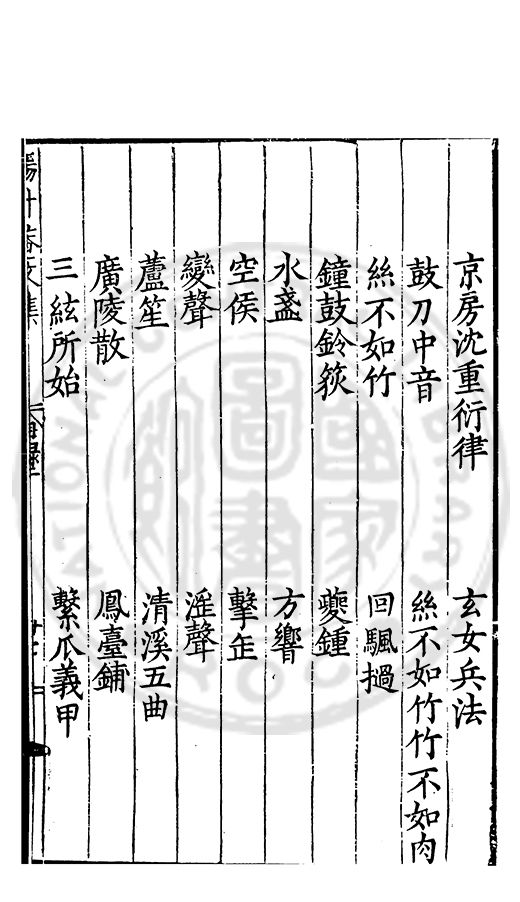 京房沈重衍律　玄女兵法
鼓刀中音　絲不如竹竹不如肉
絲不如竹　回颿撾
鐘鼓鈴篍　夔鍾
水盞　方響
空侯　擊缶
變聲　滛聲
蘆笙　清溪五曲
廣陵散　鳳臺鋪
三絃所始　繫爪義甲